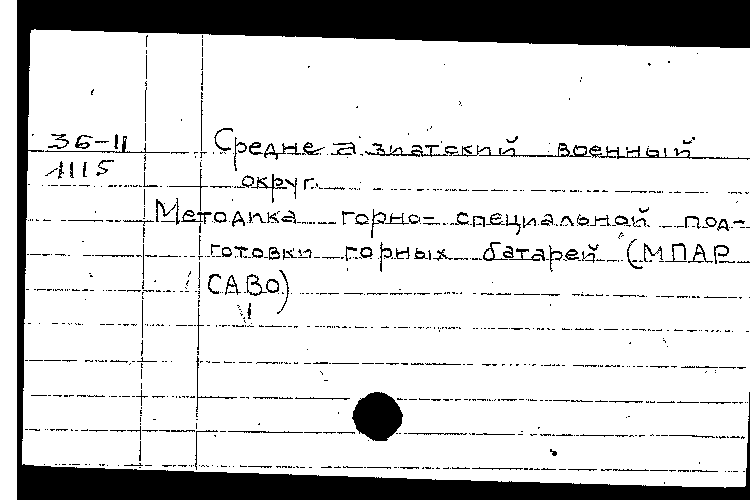 36-11
1115
Среднеазиатский военный
округ.
Методика горно-специальной под-
готовки горных батарей (МПАР
САВО)